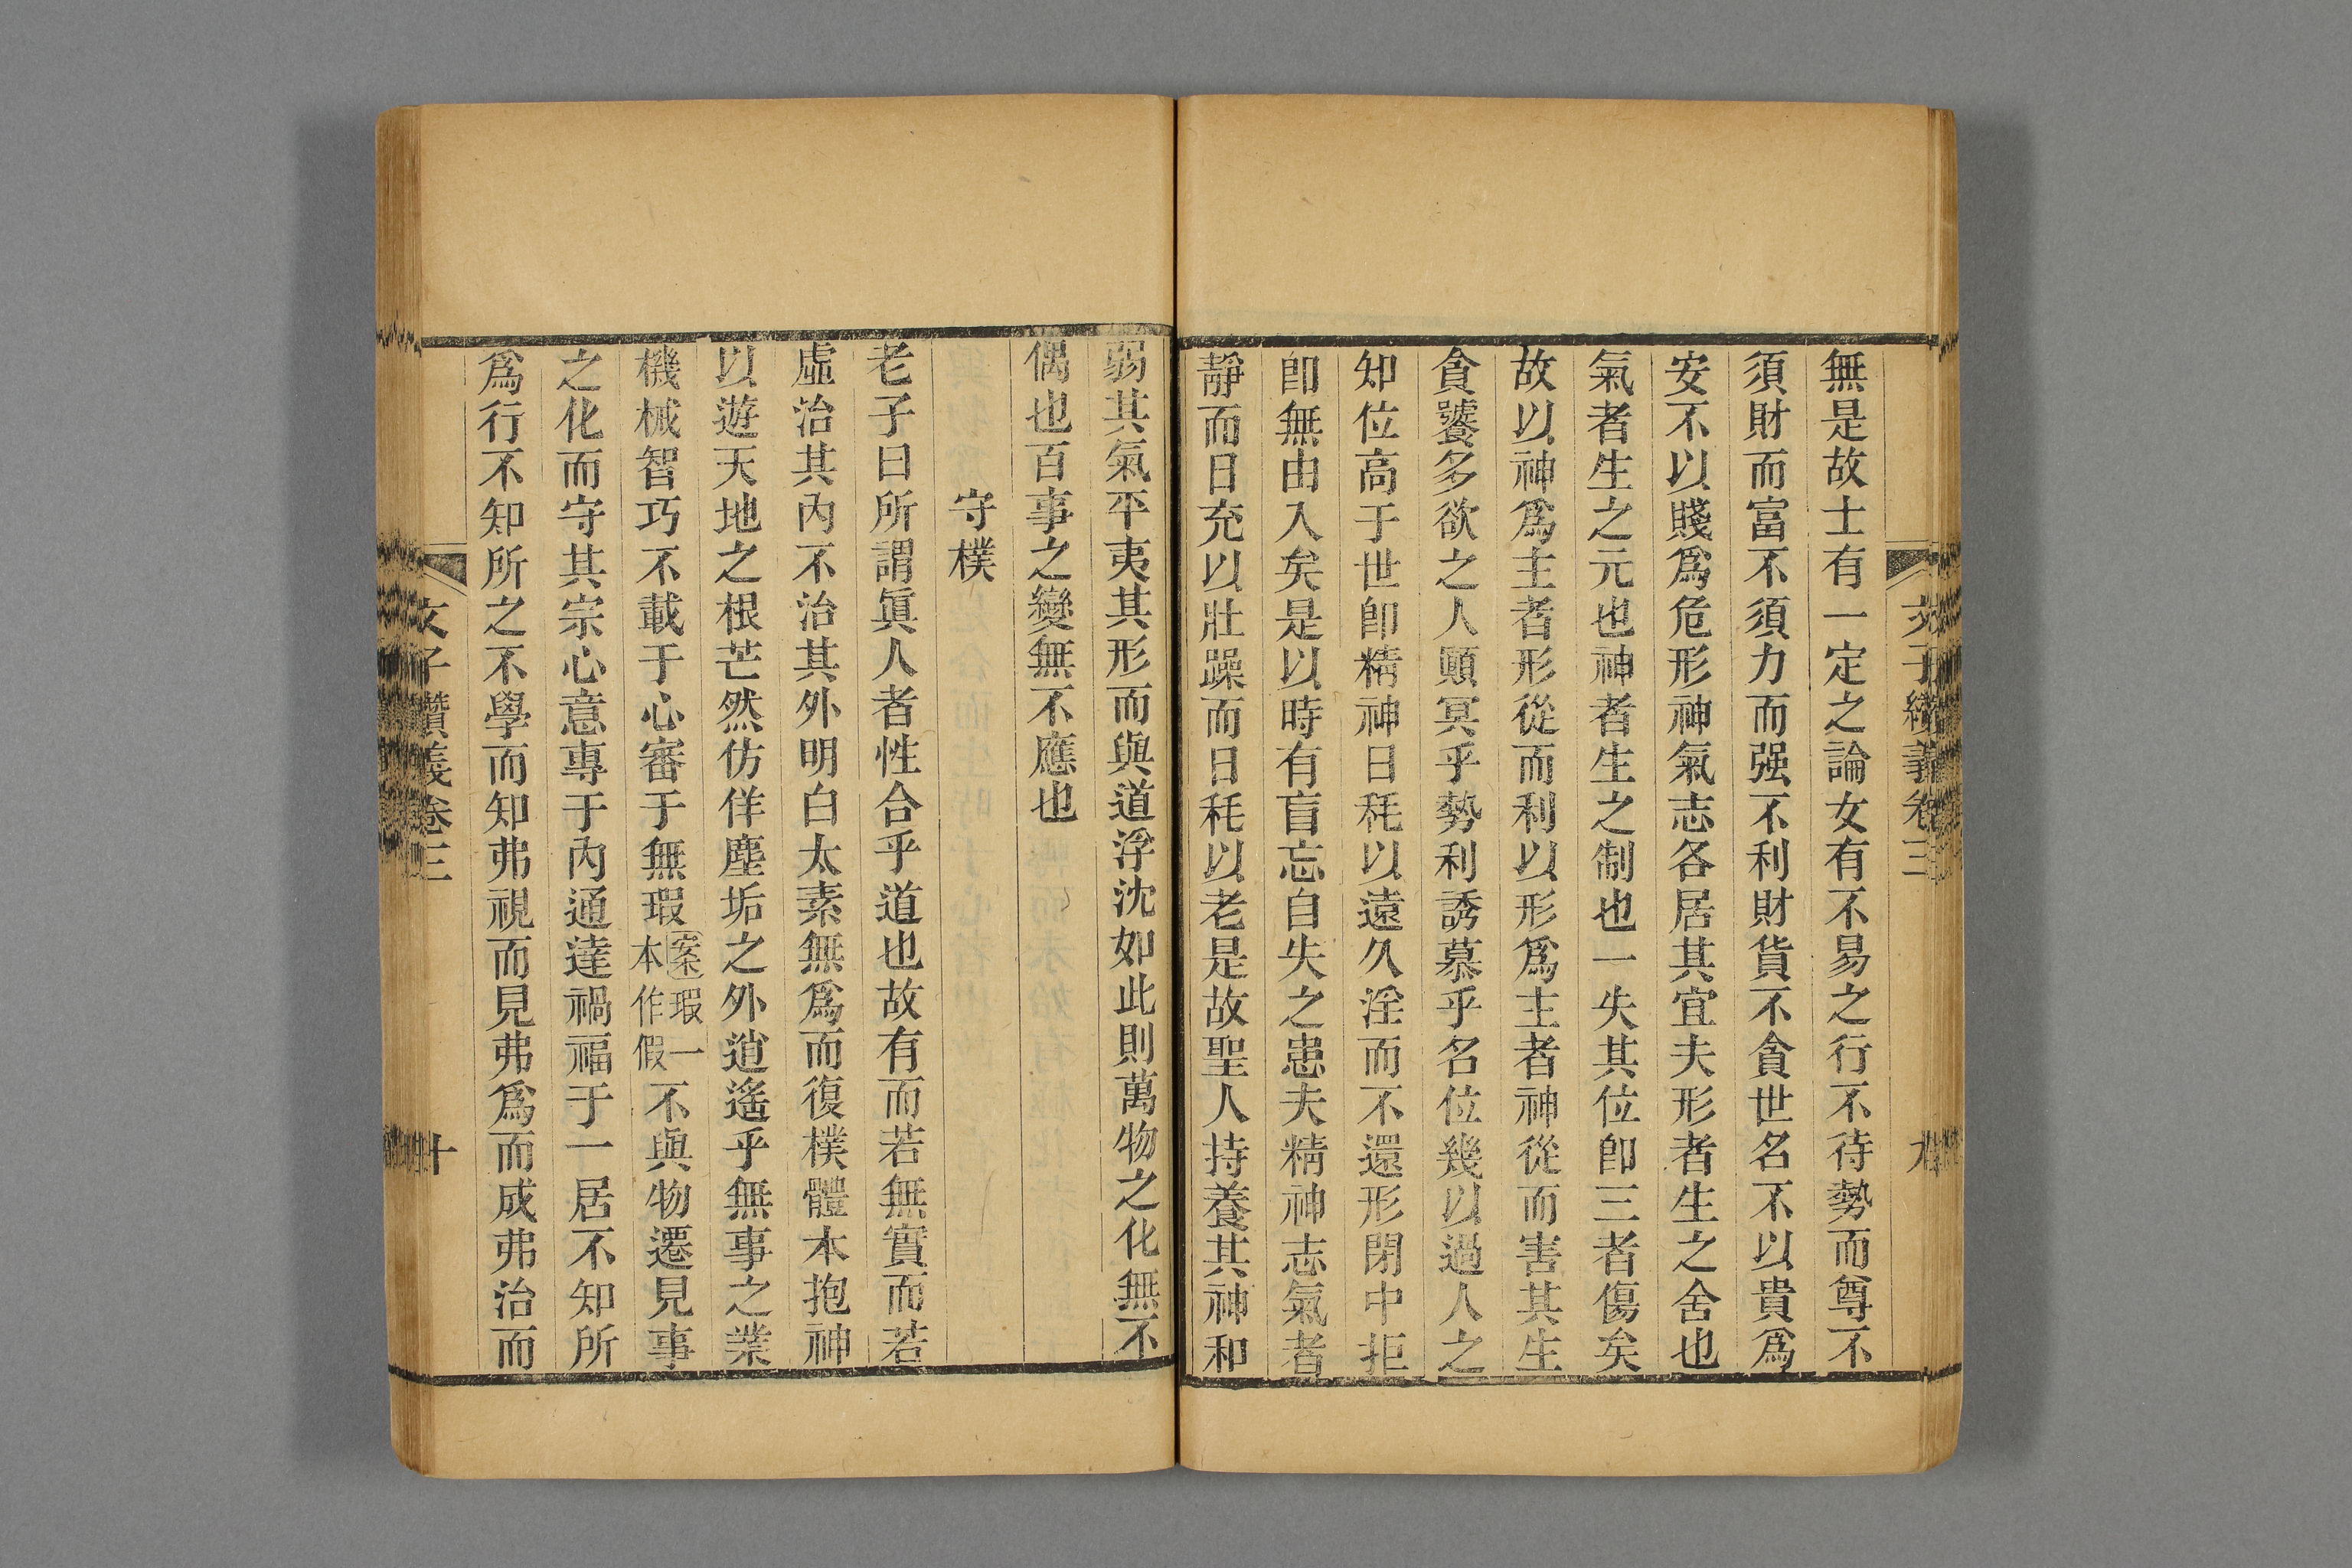 文子纘義卷三 九
無是故士有一定之論女有不易之行不待勢而尊不
須財而富不須力而强不利財貨不貪世名不以貴爲
安不以賤爲危形神氣志各居其宜夫形者生之舍也
氣者生之元也神者生之制也一失其位卽三者傷矣
故以神爲主者形從而利以形爲主者神從而害其生
貪饕多欲之人顚冥乎勢利誘慕乎名位幾以過人之
知位高于世卽精神日秏以遠久淫而不還形閉中拒
卽無由入矣是以時有盲忘自失之患夫精神志氣者
靜而日充以壯躁而日秏以老是故聖人持養其神和
弱其氣平夷其形而與道浮沈如此則萬物之化無不
偶也百事之變無不應也
守樸
老子曰所謂眞人者性合乎道也故有而若無實而若
虛治其內不治其外明白太素無爲而復樸體本抱神
以遊天地之根芒然仿佯塵垢之外逍遙乎無事之業
機械智巧不載于心審于無瑕案瑕一本作假不與物遷見事
之化而守其宗心意專于內通達禍福于一居不知所
爲行不知所之不學而知弗視而見弗爲而成弗治而
文子纘義卷三 十